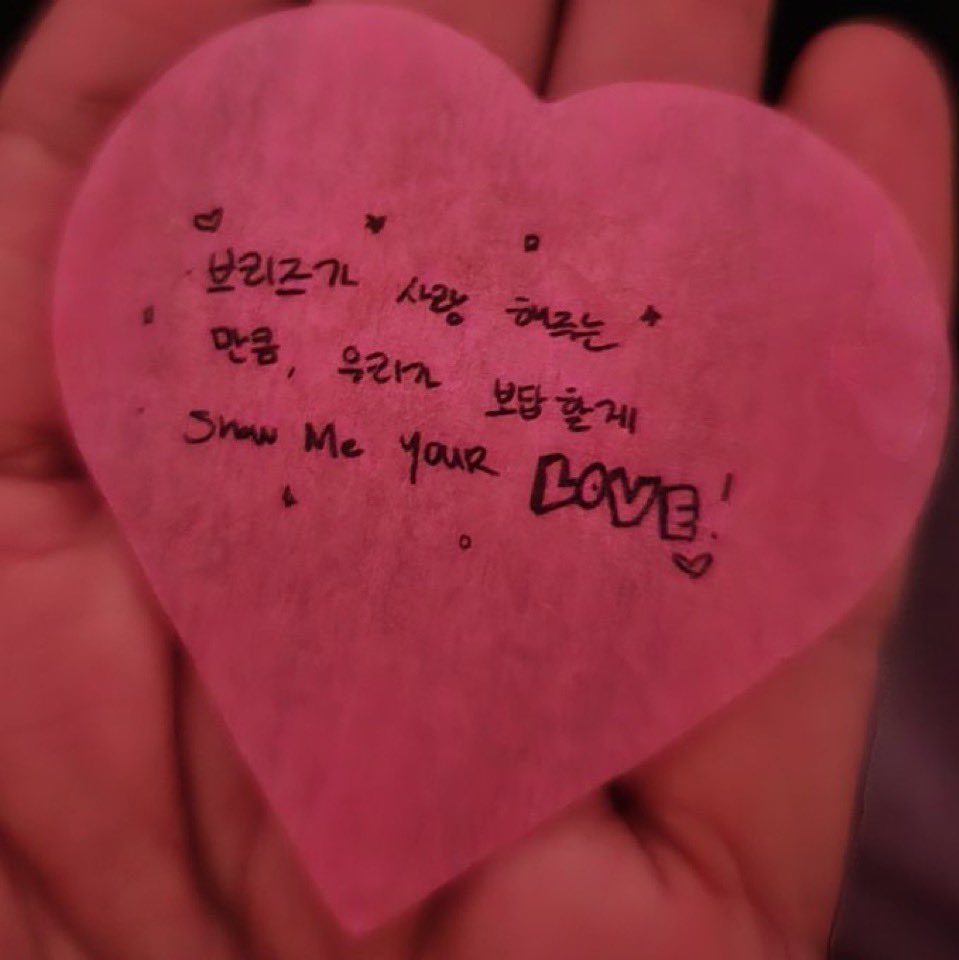 브리즈가 사랑 해주는
만큼, 우리가 보답할게
Show Me YouR LOVE!